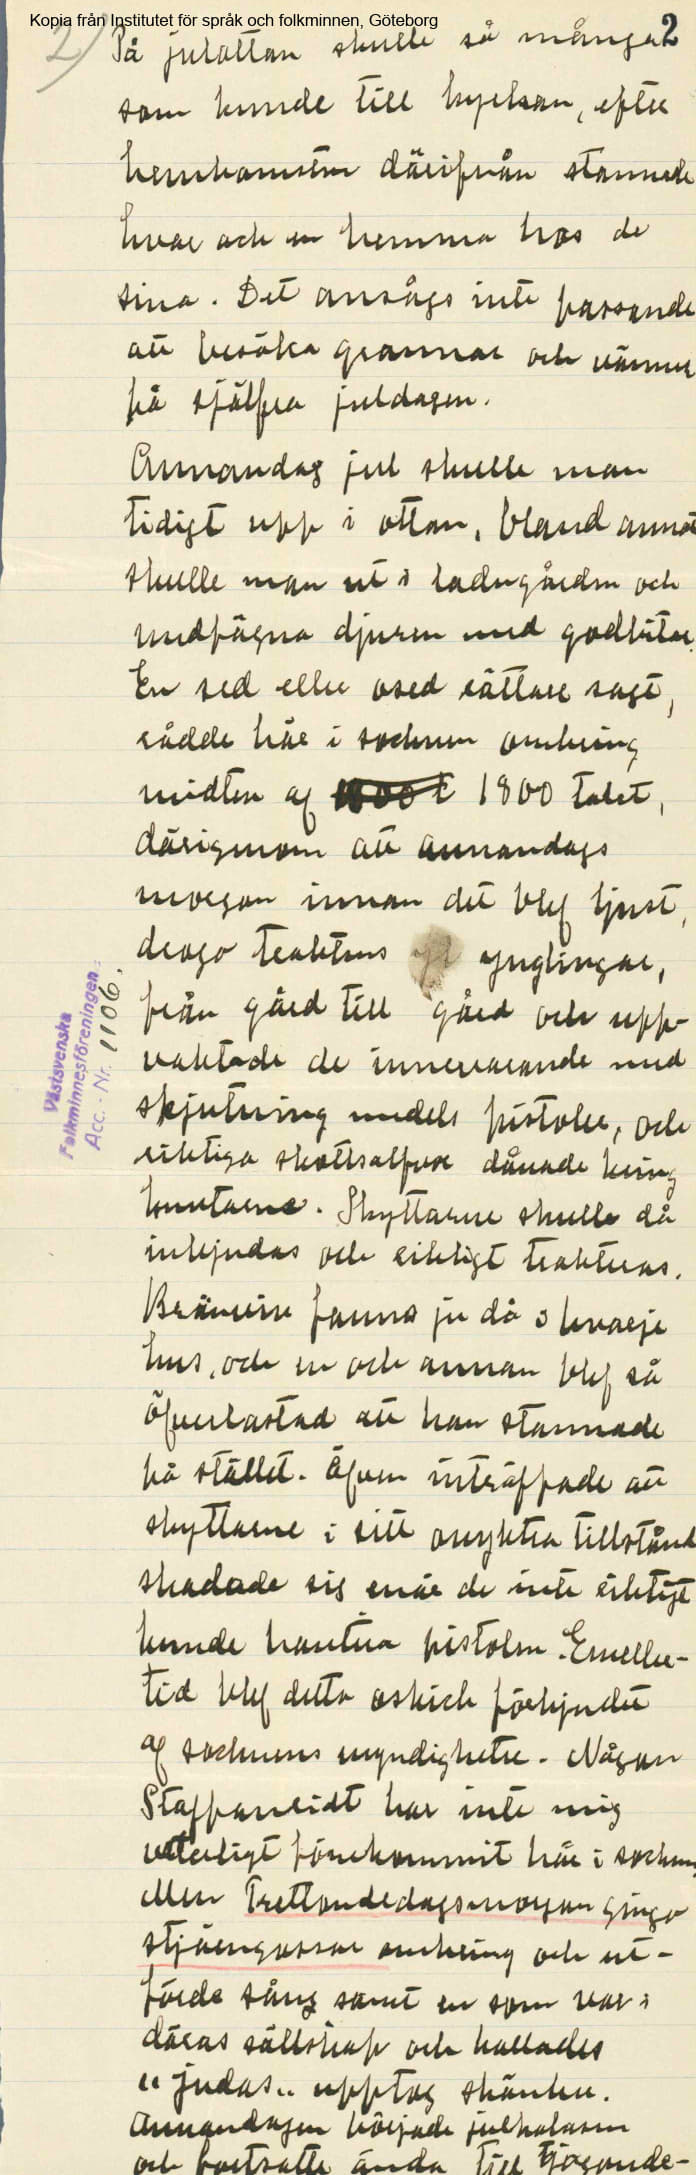 Kopia från Institutet för språk och folkminnen, Göteborg
2) 2
På julottan skulle så många
som kunde till kyrkan, efter
hemkomsten därifrån stannade
hvar och en hemma hos de
sina. Det ansågs inte passande
att besöka grannar och vänner
på själfva juldagen.
Annandag jul skulle man
tidigt upp i ottan, bland annat
skulle man ut i ladugården och
undfägna djuren med godbitar.
En sed eller osed rättare sagt,
rådde här i socknen omkring
midten af 1800 talet,
därigenom att annandags
morgon innan det blef ljust,
drogo traktens ynglingar,
från gård till gård och upp-
vaktade de innevarande med
skjutning medels pistoler, och
riktiga skottsalfvor dånade kring
knutarne. Skyttarne skulle då
inbjudas och riktigt trakteras.
Brännvin fanns ju då i hvarje
hus, och en och annan blef så
öfverlastad att han stannade
på stället. Äfven inträffade att
skyttarne i sitt onyktra tillstånd
skadade sig enär de inte riktigt
kunde hantera pistolen. Emeller-
tid blef detta oskick förbjudet
af socknens myndigheter. Någon
Staffansridt har inte mig
veterligt förekommit här i socknen,
Men Trettondedagsmorgon gingo
stjärngossar omkring och ut-
förde sång samt en som var i
däras sällskap och kallades
"judas" upptog skänker.
Annandagen började julkalasen
och fortsatte ända till tjogonde-
Västsvenska
Folkminnesföreningen
Acc. - Nr. 1106.